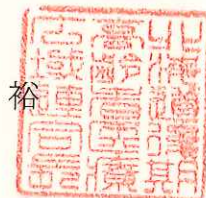 裕
北海道後期
高齢者医療
広域連合